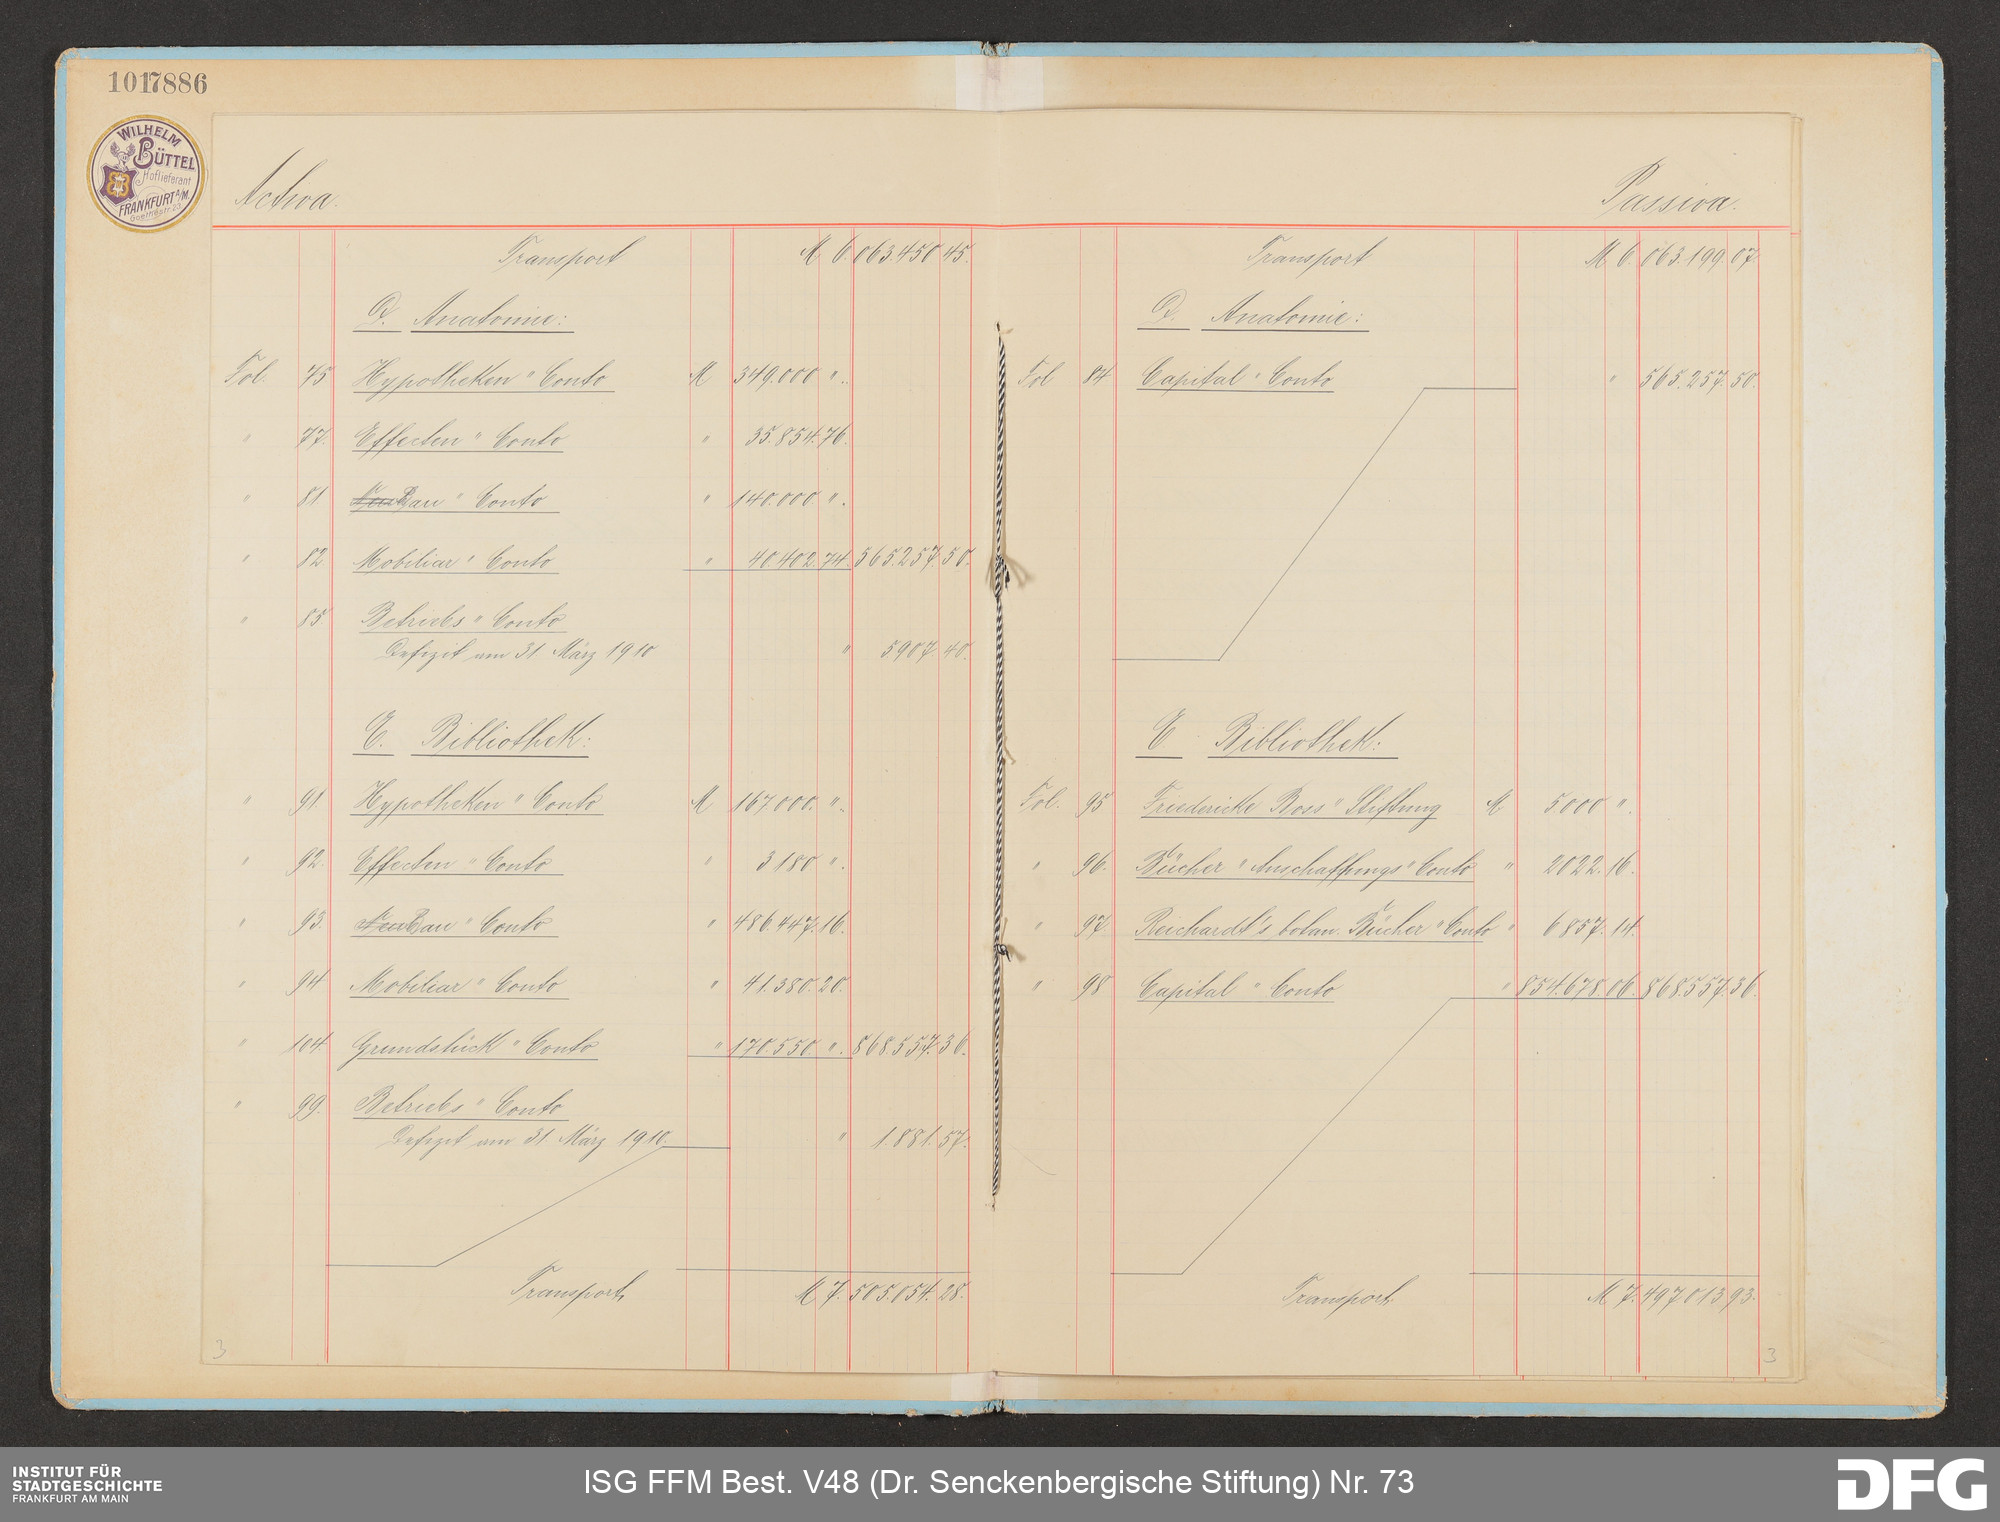 1017886
WILHELM
BÜTTEL
Hoflieferant
FRANKFURT A/M.
Goethestr. 23
Activa.
Transport M 6.063.450 45.
D. Anatomie:
Fol. 75 Hypotheken " Conto M 349.000 ".
" 77. Effecten " Conto " 35.854.76.
" 81 Neu Bau " Conto " 140.000 ".
" 82 Mobiliar " Conto " 40.402.74. 565.257.50.
" 85 Betriebs " Conto
Defizit am 31 März 1910 " 5907 40.
E. Bibliothek:
" 91 Hypotheken " Conto M 167000. ".
" 92. Effecten " Conto " 3180 ".
" 93. Neu Bau " Conto " 486.447.16.
" 94 Mobiliar " Conto " 41.380.20.
" 104. Grundstück " Conto " 170.550 ". 868.557.36.
" 99. Betriebs " Conto
Defizit am 31. März 1910. " 1.881.57.
Transport, M 7.505.054.28.
3
Passiva.
Transport M 6.063.199.07
D. Anatomie:
Fol 84 Capital " Conto " 565.257.50.
E Bibliothek:
Fol. 95 Friedericke Boss " Stiftung M 5000 ".
" 96. Bücher " Anschaffungs " Conto " 2022.16.
" 97 Reichardt's botan. Bücher " Conto " 6857.14.
" 98 Capital " Conto " 854.678.06. 868.557.36.
Transport, M 7.497013.93.
3
INSTITUT FÜR
STADTGESCHICHTE
FRANKFURT AM MAIN
ISG FFM Best. V48 (Dr. Senckenbergische Stiftung) Nr. 73
DFG